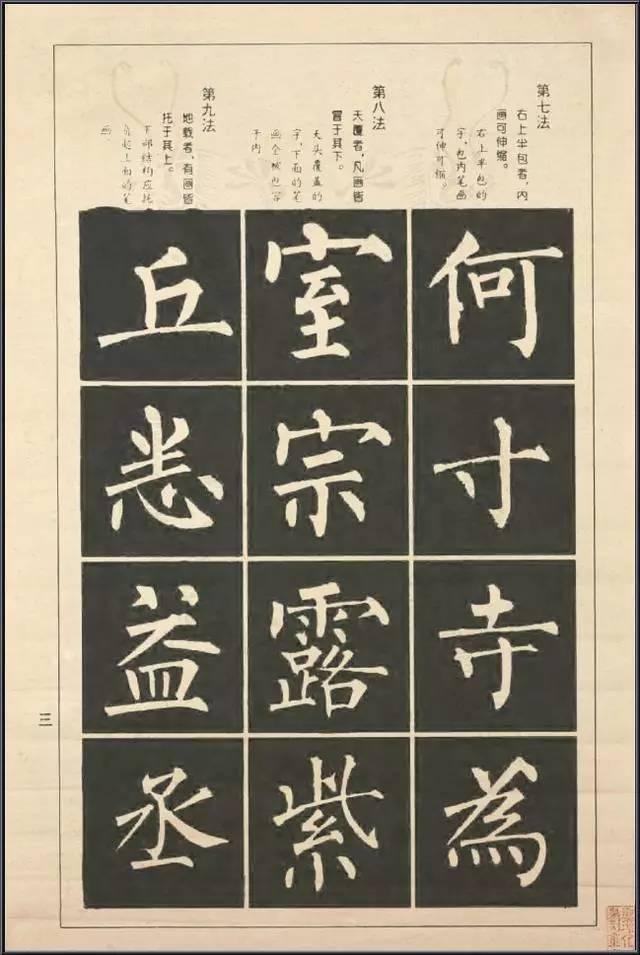 第七法
右上半包者，内
画可伸缩。
右上半包的
字，包内笔画
可伸可缩。
何
寸
寺
為
第八法
天覆者，凡画皆
冒于其下。
天头覆盖的
字，下面的笔
画全被包容
于内
室
宗
露
紫
第九法
地载者，有画皆
托于其上。
下部结构应托
负起上面的笔
画
丘
悉
益
丞
三